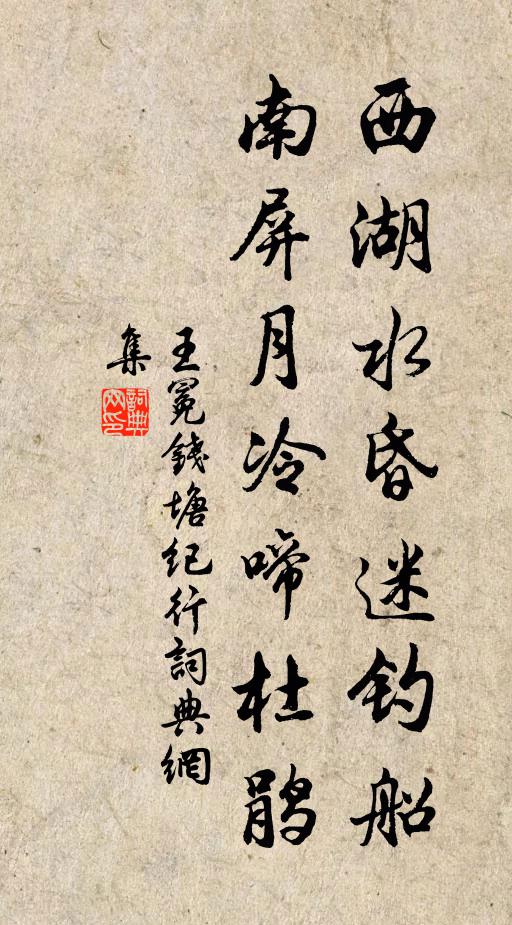 西湖水昏迷钓船
南屏月冷啼杜鹃
王冕錢塘纪行詞典網
集
詞典
网印